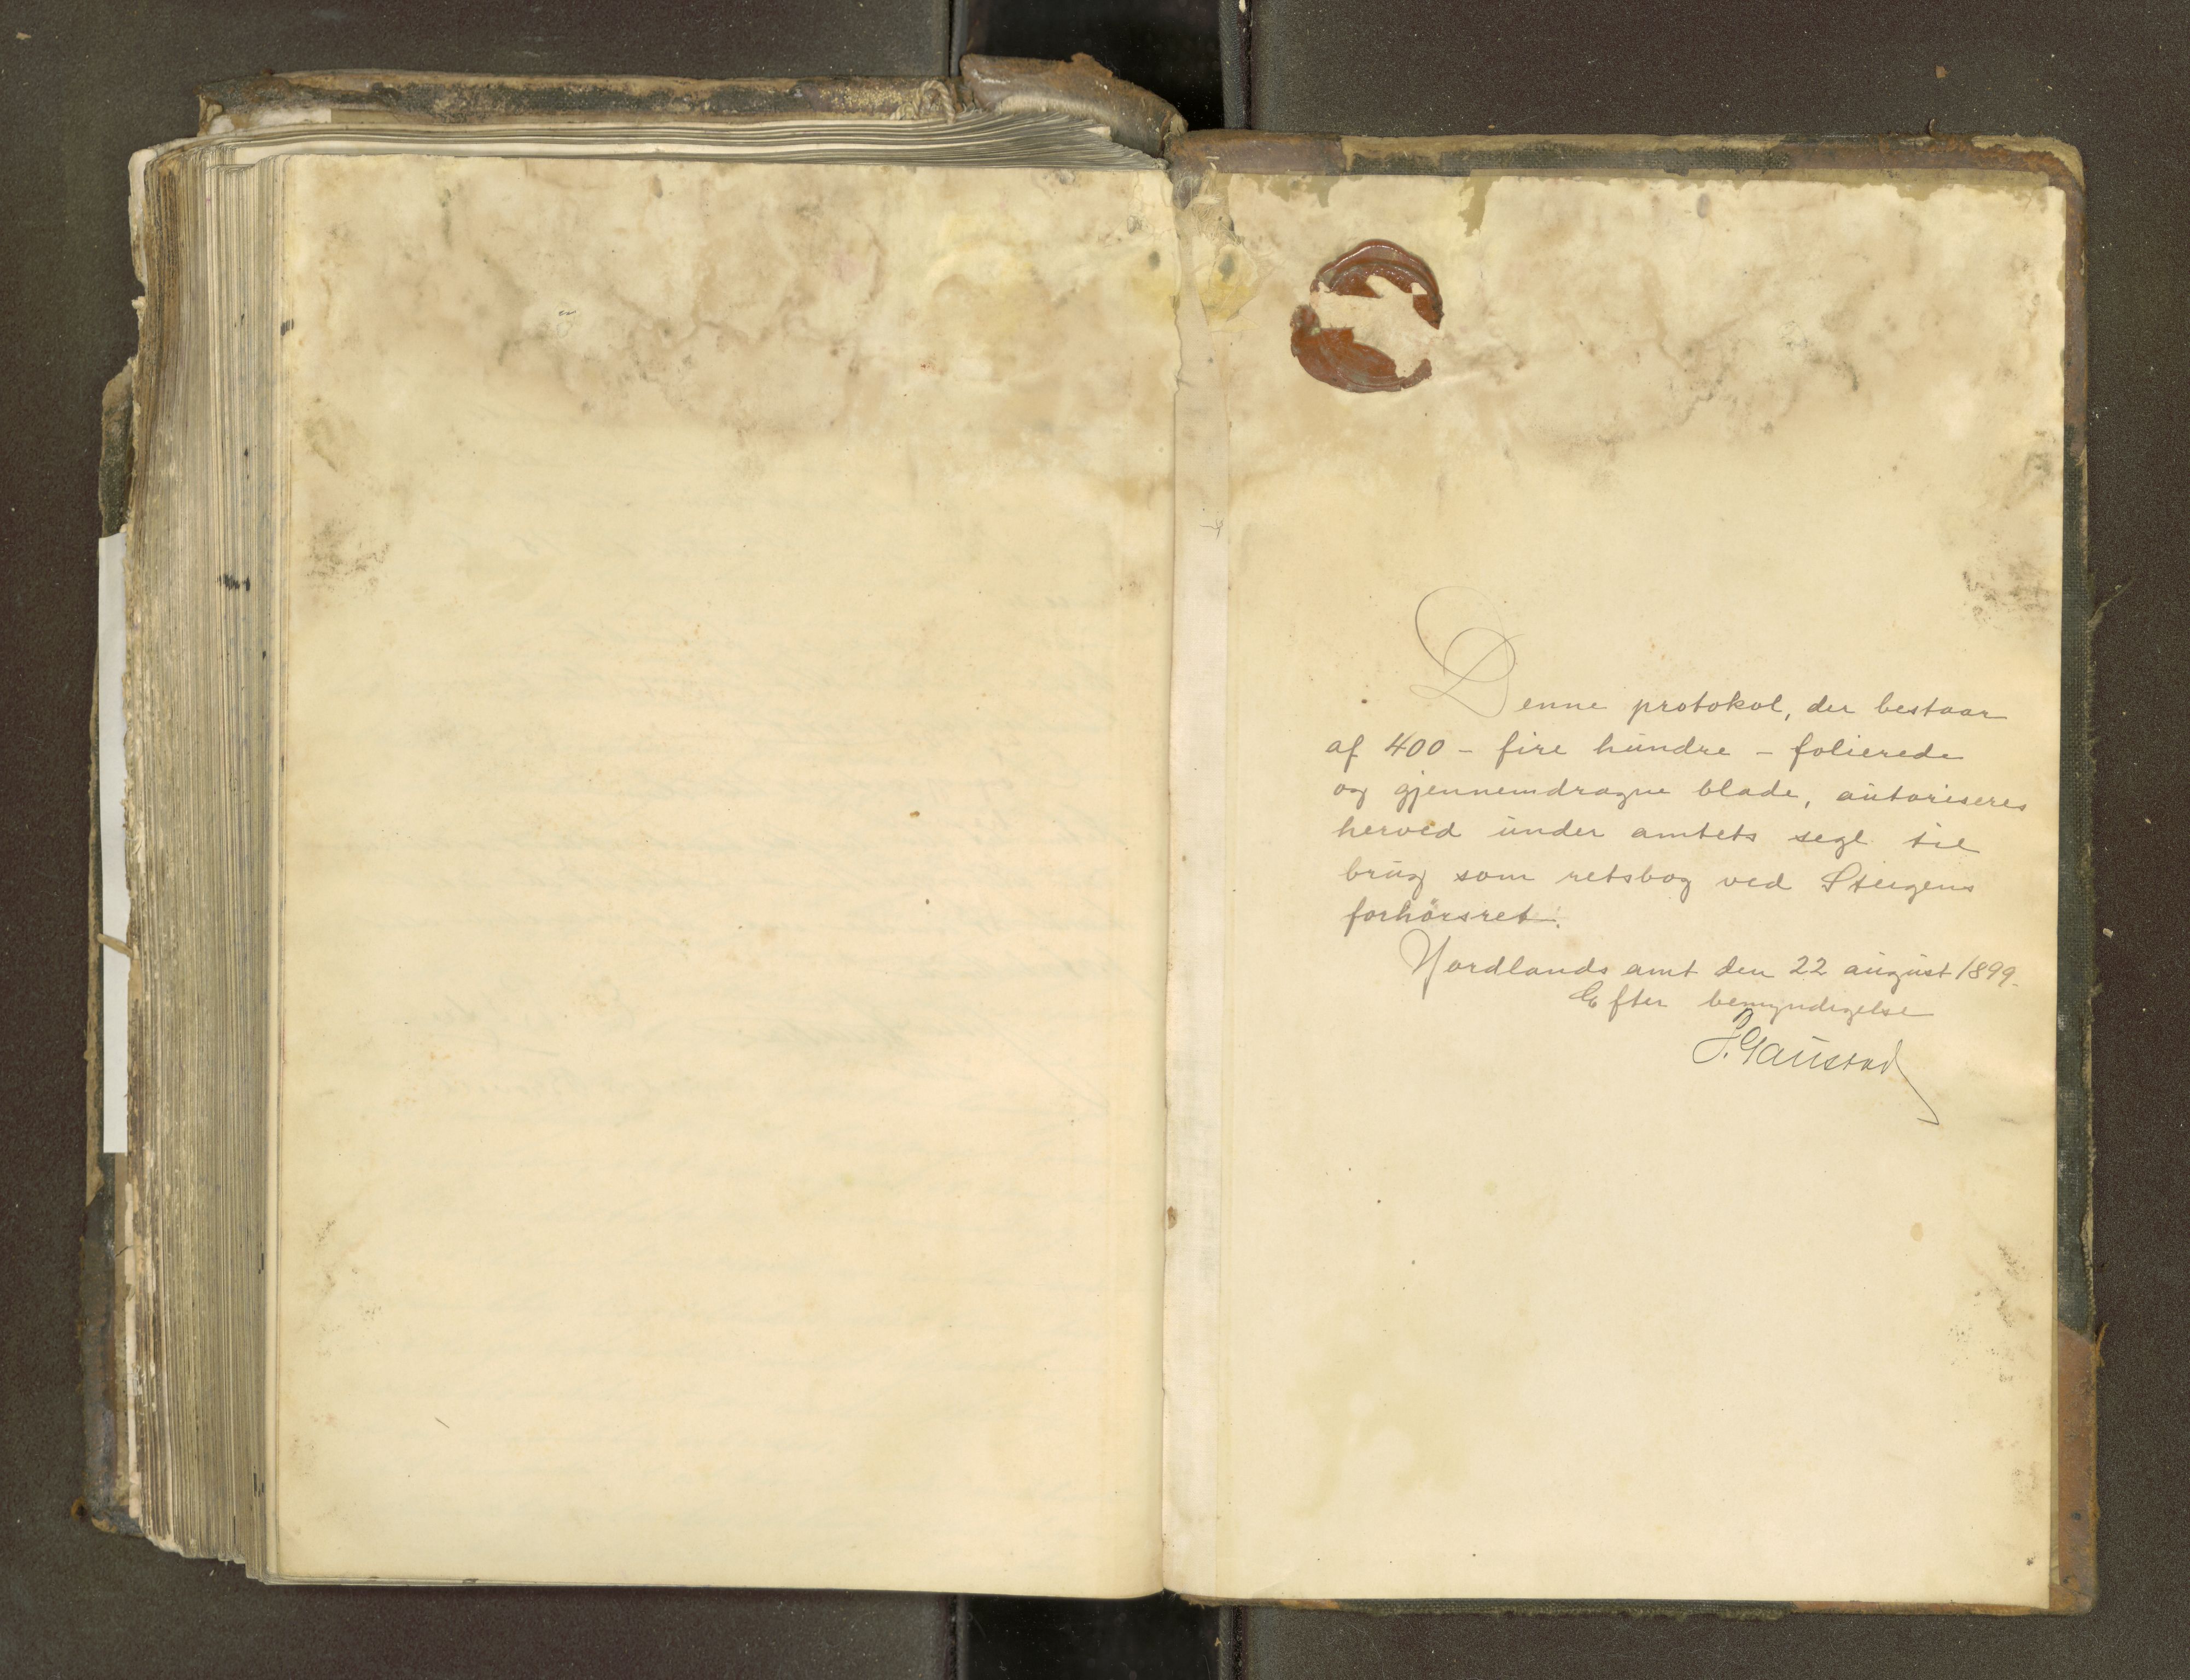 Denne protokol, der bestaar
af 400 - fire hundre - folierede
og gjennemdragne blade, autoriseres
herved under amtets segl til
brug som retsbog ved Steigens
forhørsret.
Nordlands amt den 22 august 1899.
Efter bemyndigelse
J. Gaustad